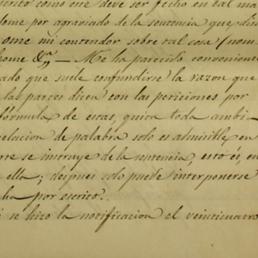 mento como one deve ser fecho en tal ma
dome por agraviado de la sentencia que dien
ome mi contendor sobre tal cosa (nom
home &c — Me ha parecido conveniente
ado que suele confundirse la razon que
las partes dicen con las peticiones por
fórmula de estas, quita toda ambi-
pelacion de palabra solo es admisible en
re se instruye de la sentencia, esto es, en
ella; despues solo puede interponerse
ba por escrito.
i se hizo la notificacion el veinticuatro